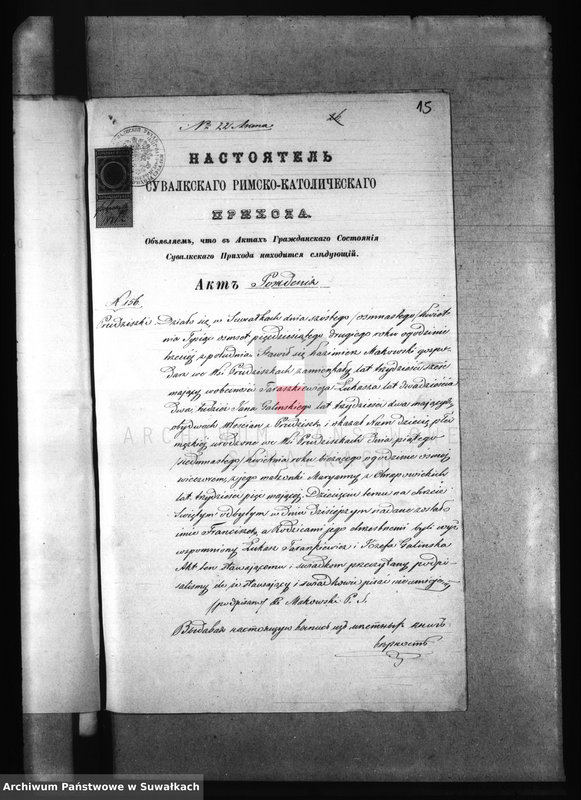 15
№ 22 Акта
НАСТОЯТЕЛЬ
СУВАЛКСКАГО РИМСКО-КАТОЛИЧЕСКАГО
ПРИХОДА.
Объявляемъ, что въ Актахъ Гражданскаго Состоянія
Сувалкскаго Прихода находится слѣдующій.
Актъ Рожденія
N. 156.
Prudziszki. Działo się w Suwałkach dnia szóstego /osmnastego/ Kwiet
nia Tysiąc osmset pięćdziesiątego drugiego roku o godzinie
trzeciej z południa. Stawił się Kazimierz Makowski gospo
darz we W. Prudziszkach zamieszkały lat trzydzieści sześć
mający w obecności Taraszkiewicza Łukasza lat dwadzieścia
dwa, tudzież Jana Galinskiego lat trzydzieści dwa mających
obydwóch Włoscian z Prudziszk i okazał Nam dziecię płci
męzkiej urodzone we W. Prudziszkach dnia piątego
/siedmnastego/ Kwietnia roku bieżącego o godzinie osmej
wieczorem, z jego małżonki Maryanny z Chrapowickich
lat trzydzieści pięć mającej. Dziecięciu temu na chrzcie
Świętym odbytym w dniu dzisiejszym nadane zostało
imie Franciszek, a Rodzicami jego chrzestnemi byli wyż
wspomniony Łukasz Taraszkiewicz i Józefa Galinska
Akt ten stawającemu i swiadkom przeczytany podpi
saliśmy bo stawający i swiadkowie pisać nie umieją
/podpisano/ X. Makowski P. S.
Выдавая настоящую выпись изъ мѣстныхъ книгъ
вѣрность
ARCHIWUM PAŃSTWOWE
Archiwum Państwowe w Suwałkach